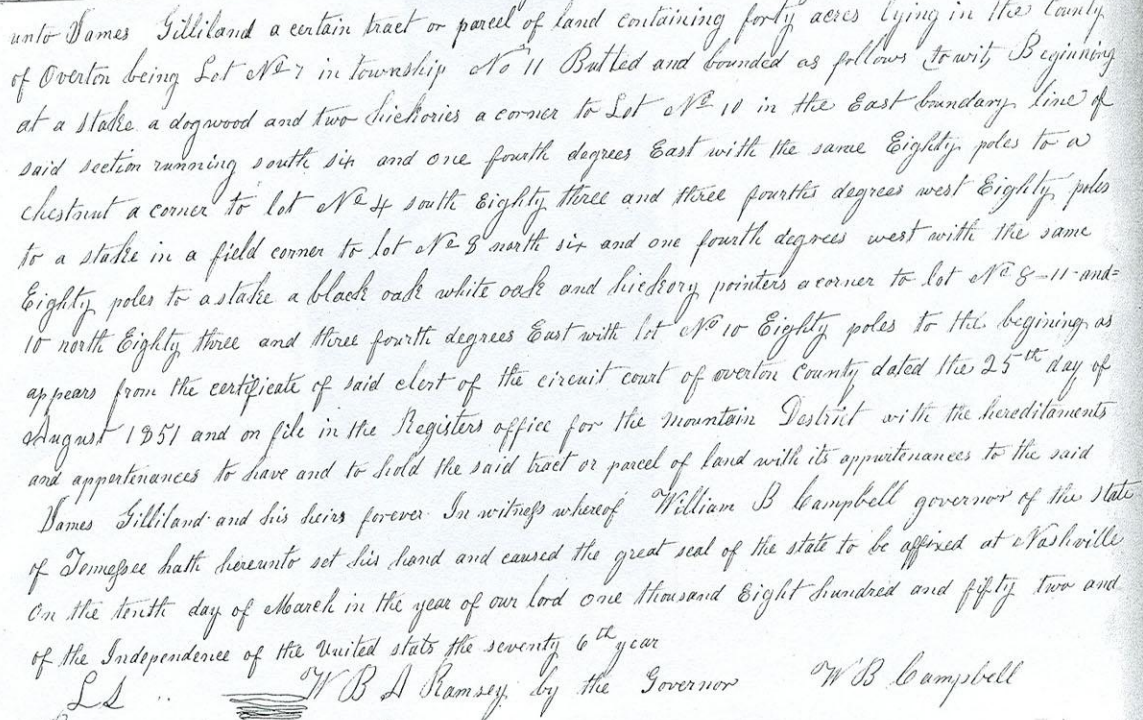 unto James Gilliland a certain tract or parcel of land containing forty acres lying in the County
of Overton being Lot No 7 in township No 11 Butted and bounded as follows towit, Beginning
at a stake a dogwood and two hickories a corner to Lot No 10 in the East boundary line of
said section running south six and one fourth degrees East with the same Eighty poles to a
chestnut a corner to lot No 4 south Eighty three and three fourths degrees west Eighty poles
to a stake in a field corner to lot No 8 north six and one fourth degrees west with the same
Eighty poles to a stake a black oak white oak and hickory pointers a corner to lot No 8-11-and=
10 north Eighty three and three fourth degrees East with lot No 10 Eighty poles to the begining as
appears from the certificate of said clert of the circuit court of overton County dated the 25th day of
August 1851 and on file in the Registers office for the mountain Destrict with the hereditaments
and appertenances to have and to hold the said tract or parcel of land with its appurtenances to the said
James Gilliland and his heirs forever. In witness whereof William B Campbell governor of the state
of Tennessee hath hereunto set his hand and caused the great seal of the state to be affixed at Nashville
On the tenth day of March in the year of our lord one thousand Eight hundred and fifty two and
of the Independence of the United stats the seventy 6th year
LS .. W B A Ramsey, by the Governor W B Campbell